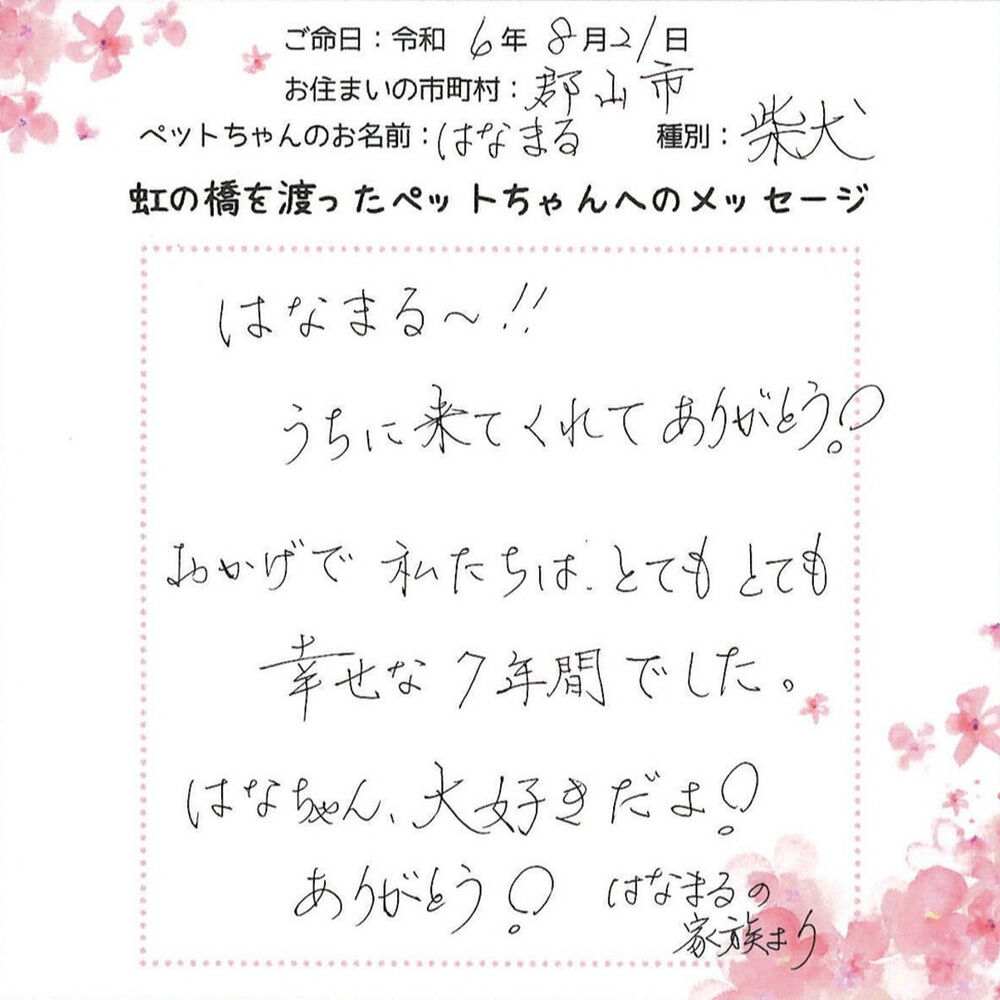 ご命日:令和 6年 8月21日
お住まいの市町村:郡山市
ペットちゃんのお名前:はなまる 種別:柴犬
虹の橋を渡ったペットちゃんへのメッセージ
はなまる〜!!
うちに来てくれてありがとう!
おかげで私たちは、とてもとても
幸せな7年間でした。
はなちゃん、大好きだよ!
ありがとう! はなまるの
家族より